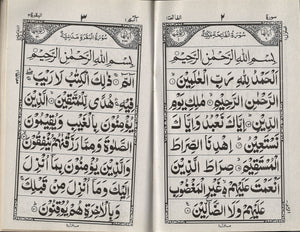 سورة ٢ الفاتحة
سورة الفاتحة مكية
بِسْمِ اللّٰهِ الرَّحْمٰنِ الرَّحِيْمِ
اَلْحَمْدُ لِلّٰهِ رَبِّ الْعٰلَمِيْنَ
الرَّحْمٰنِ الرَّحِيْمِ مٰلِكِ يَوْمِ
الدِّيْنِ اِيَّاكَ نَعْبُدُ وَاِيَّاكَ
نَسْتَعِيْنُ اِهْدِنَا الصِّرَاطَ
الْمُسْتَقِيْمَ صِرَاطَ الَّذِيْنَ
اَنْعَمْتَ عَلَيْهِمْ غَيْرِ الْمَغْضُوْبِ
عَلَيْهِمْ وَلَا الضَّآلِّيْنَ
البقرة ٣
سورة البقرة مدنية
بِسْمِ اللّٰهِ الرَّحْمٰنِ الرَّحِيْمِ
الٓمّٓ ذٰلِكَ الْكِتٰبُ لَا رَيْبَ
فِيْهِ هُدًى لِّلْمُتَّقِيْنَ الَّذِيْنَ
يُؤْمِنُوْنَ بِالْغَيْبِ وَيُقِيْمُوْنَ
الصَّلٰوةَ وَمِمَّا رَزَقْنٰهُمْ يُنْفِقُوْنَ
وَالَّذِيْنَ يُؤْمِنُوْنَ بِمَآ اُنْزِلَ
اِلَيْكَ وَمَآ اُنْزِلَ مِنْ قَبْلِكَ
وَبِالْاٰخِرَةِ هُمْ يُوْقِنُوْنَ